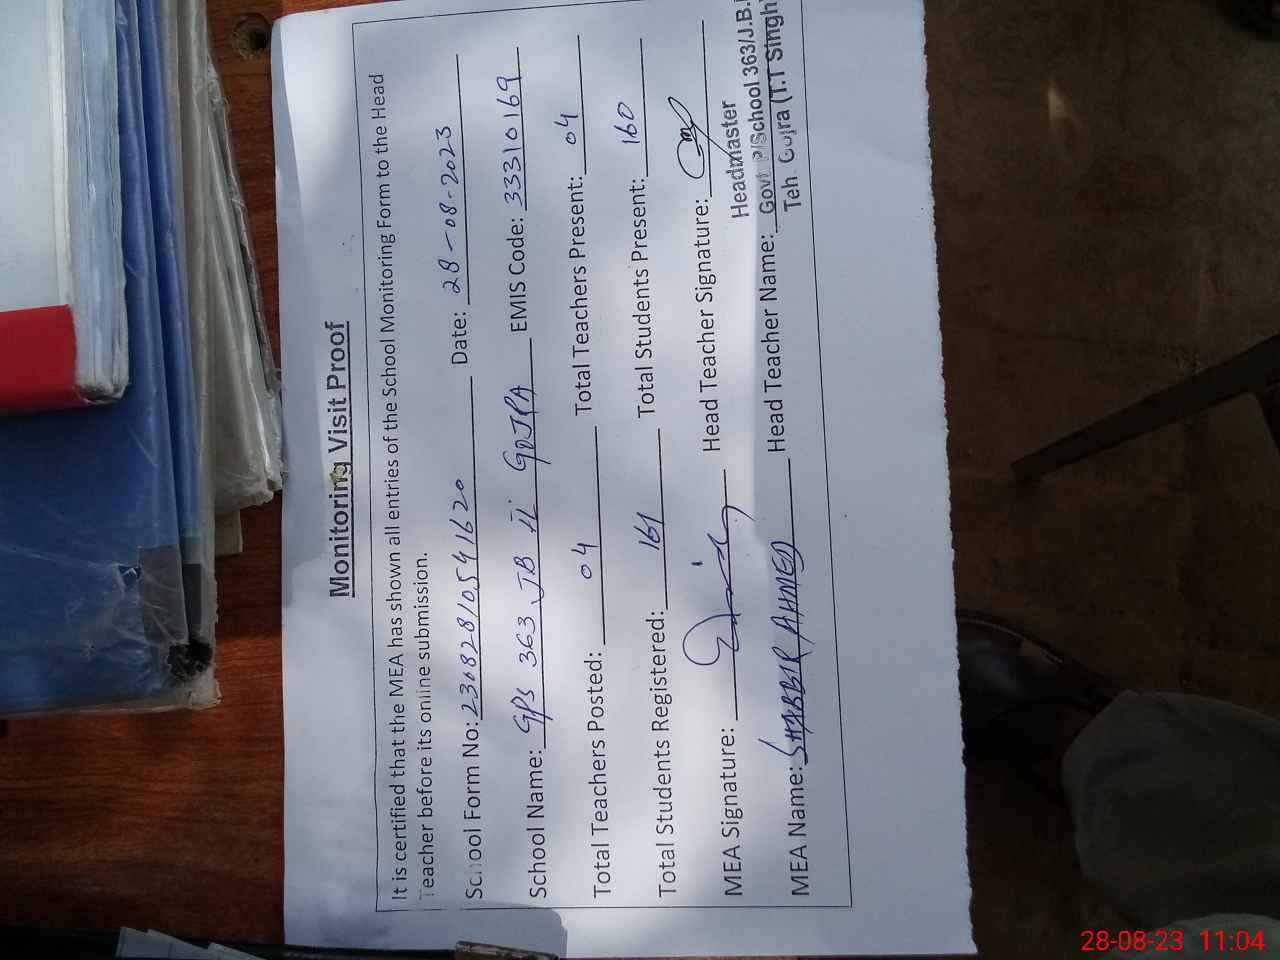 Monitoring Visit Proof
It is certified that the MEA has shown all entries of the School Monitoring Form to the Head
Teacher before its online submission.
School Form No: 23082810541620 Date: 28-08-2023
School Name: GPS 363 JB GOJRA EMIS Code: 33310169
Total Teachers Posted: 04 Total Teachers Present: 04
Total Students Registered: 161 Total Students Present: 160
MEA Signature: Head Teacher Signature:
Headmaster
MEA Name: SHABBIR AHMED Head Teacher Name: Govt P/School 363/J.B.
Teh. Gojra (T.T Singh)
28-08-23 11:04